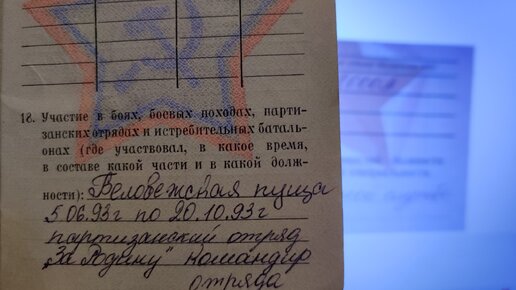 18. Участие в боях, боевых походах, парти-
занских отрядах и истребительных баталь-
онах (где участвовал, в какое время,
в составе какой части и в какой долж-
ности): Беловежская пуща
5.06.93г по 20.10.93г
партизанский отряд
„За Родину" командир
отряда